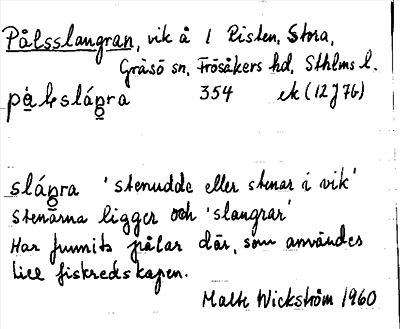 Pålsslangran, vik å 1 Risten, Stora,
Gräsö sn, Frösåkers hd, Sthlms l.
354 ek (12J7G)
slåŋra 'stenudde eller stenar i vik'
stenarna ligger och 'slangrar'
Har funnits pålar där, som användes
till fiskredskapen.
Mats Wickström 1960